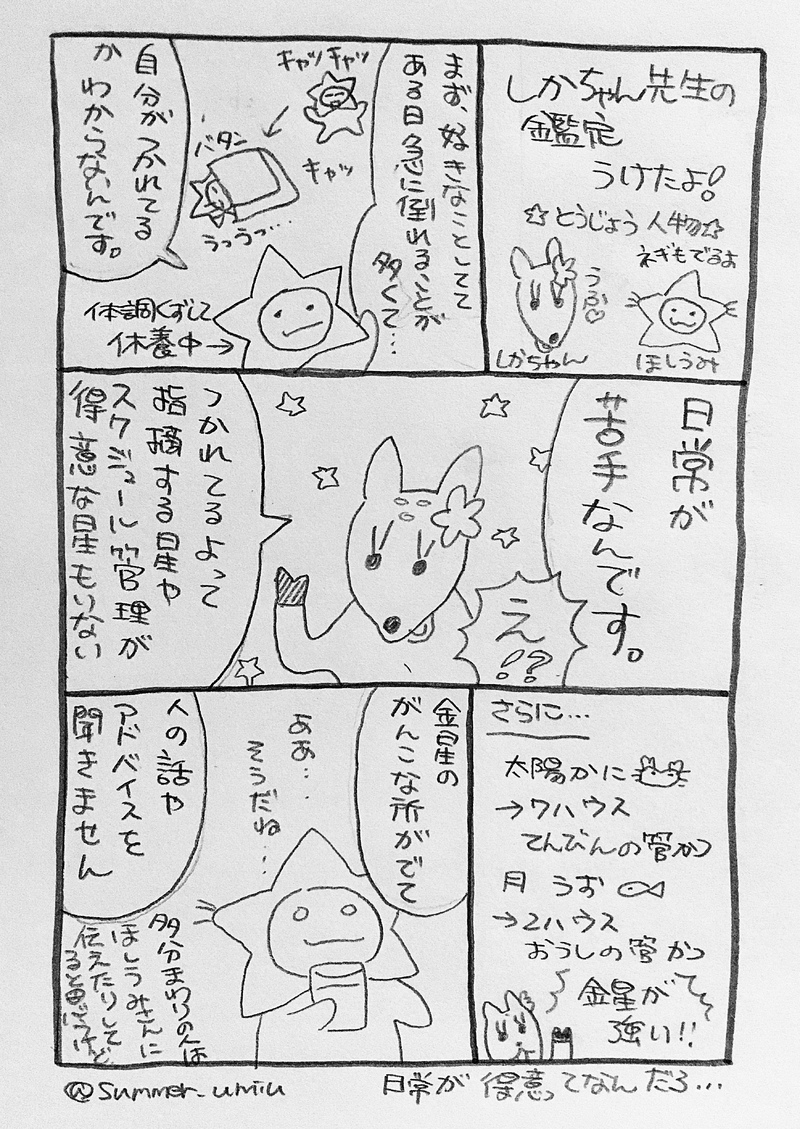 しかちゃん先生の
鑑定
うけたよ!
☆とうじょう人物☆
ネギもでるよ
うふ♡
しかちゃん
ほしうみ
まず、好きなことしてて
ある日急に倒れることが
多くて…
キャッキャッ
キャッ
バタン
うっうっ…
自分がつかれてる
かわからないんです。
体調くずして
休養中→
日常が
苦手なんです。
え!?
つかれてるよって
指摘する星や
スケジュール管理が
得意な星もいない
さらに…
太陽かに
→7ハウス
てんびんの管かつ
月うお
→2ハウス
おうしの管かつ
金星が
強い!!
金星の
がんこな所がでて
ああ…
そうだね…
人の話や
アドバイスを
聞きません
多分まわりの人は
ほしうみさんに
伝えたりしてると思うけど
@summer_umiu
日常が得意ってなんだろ…